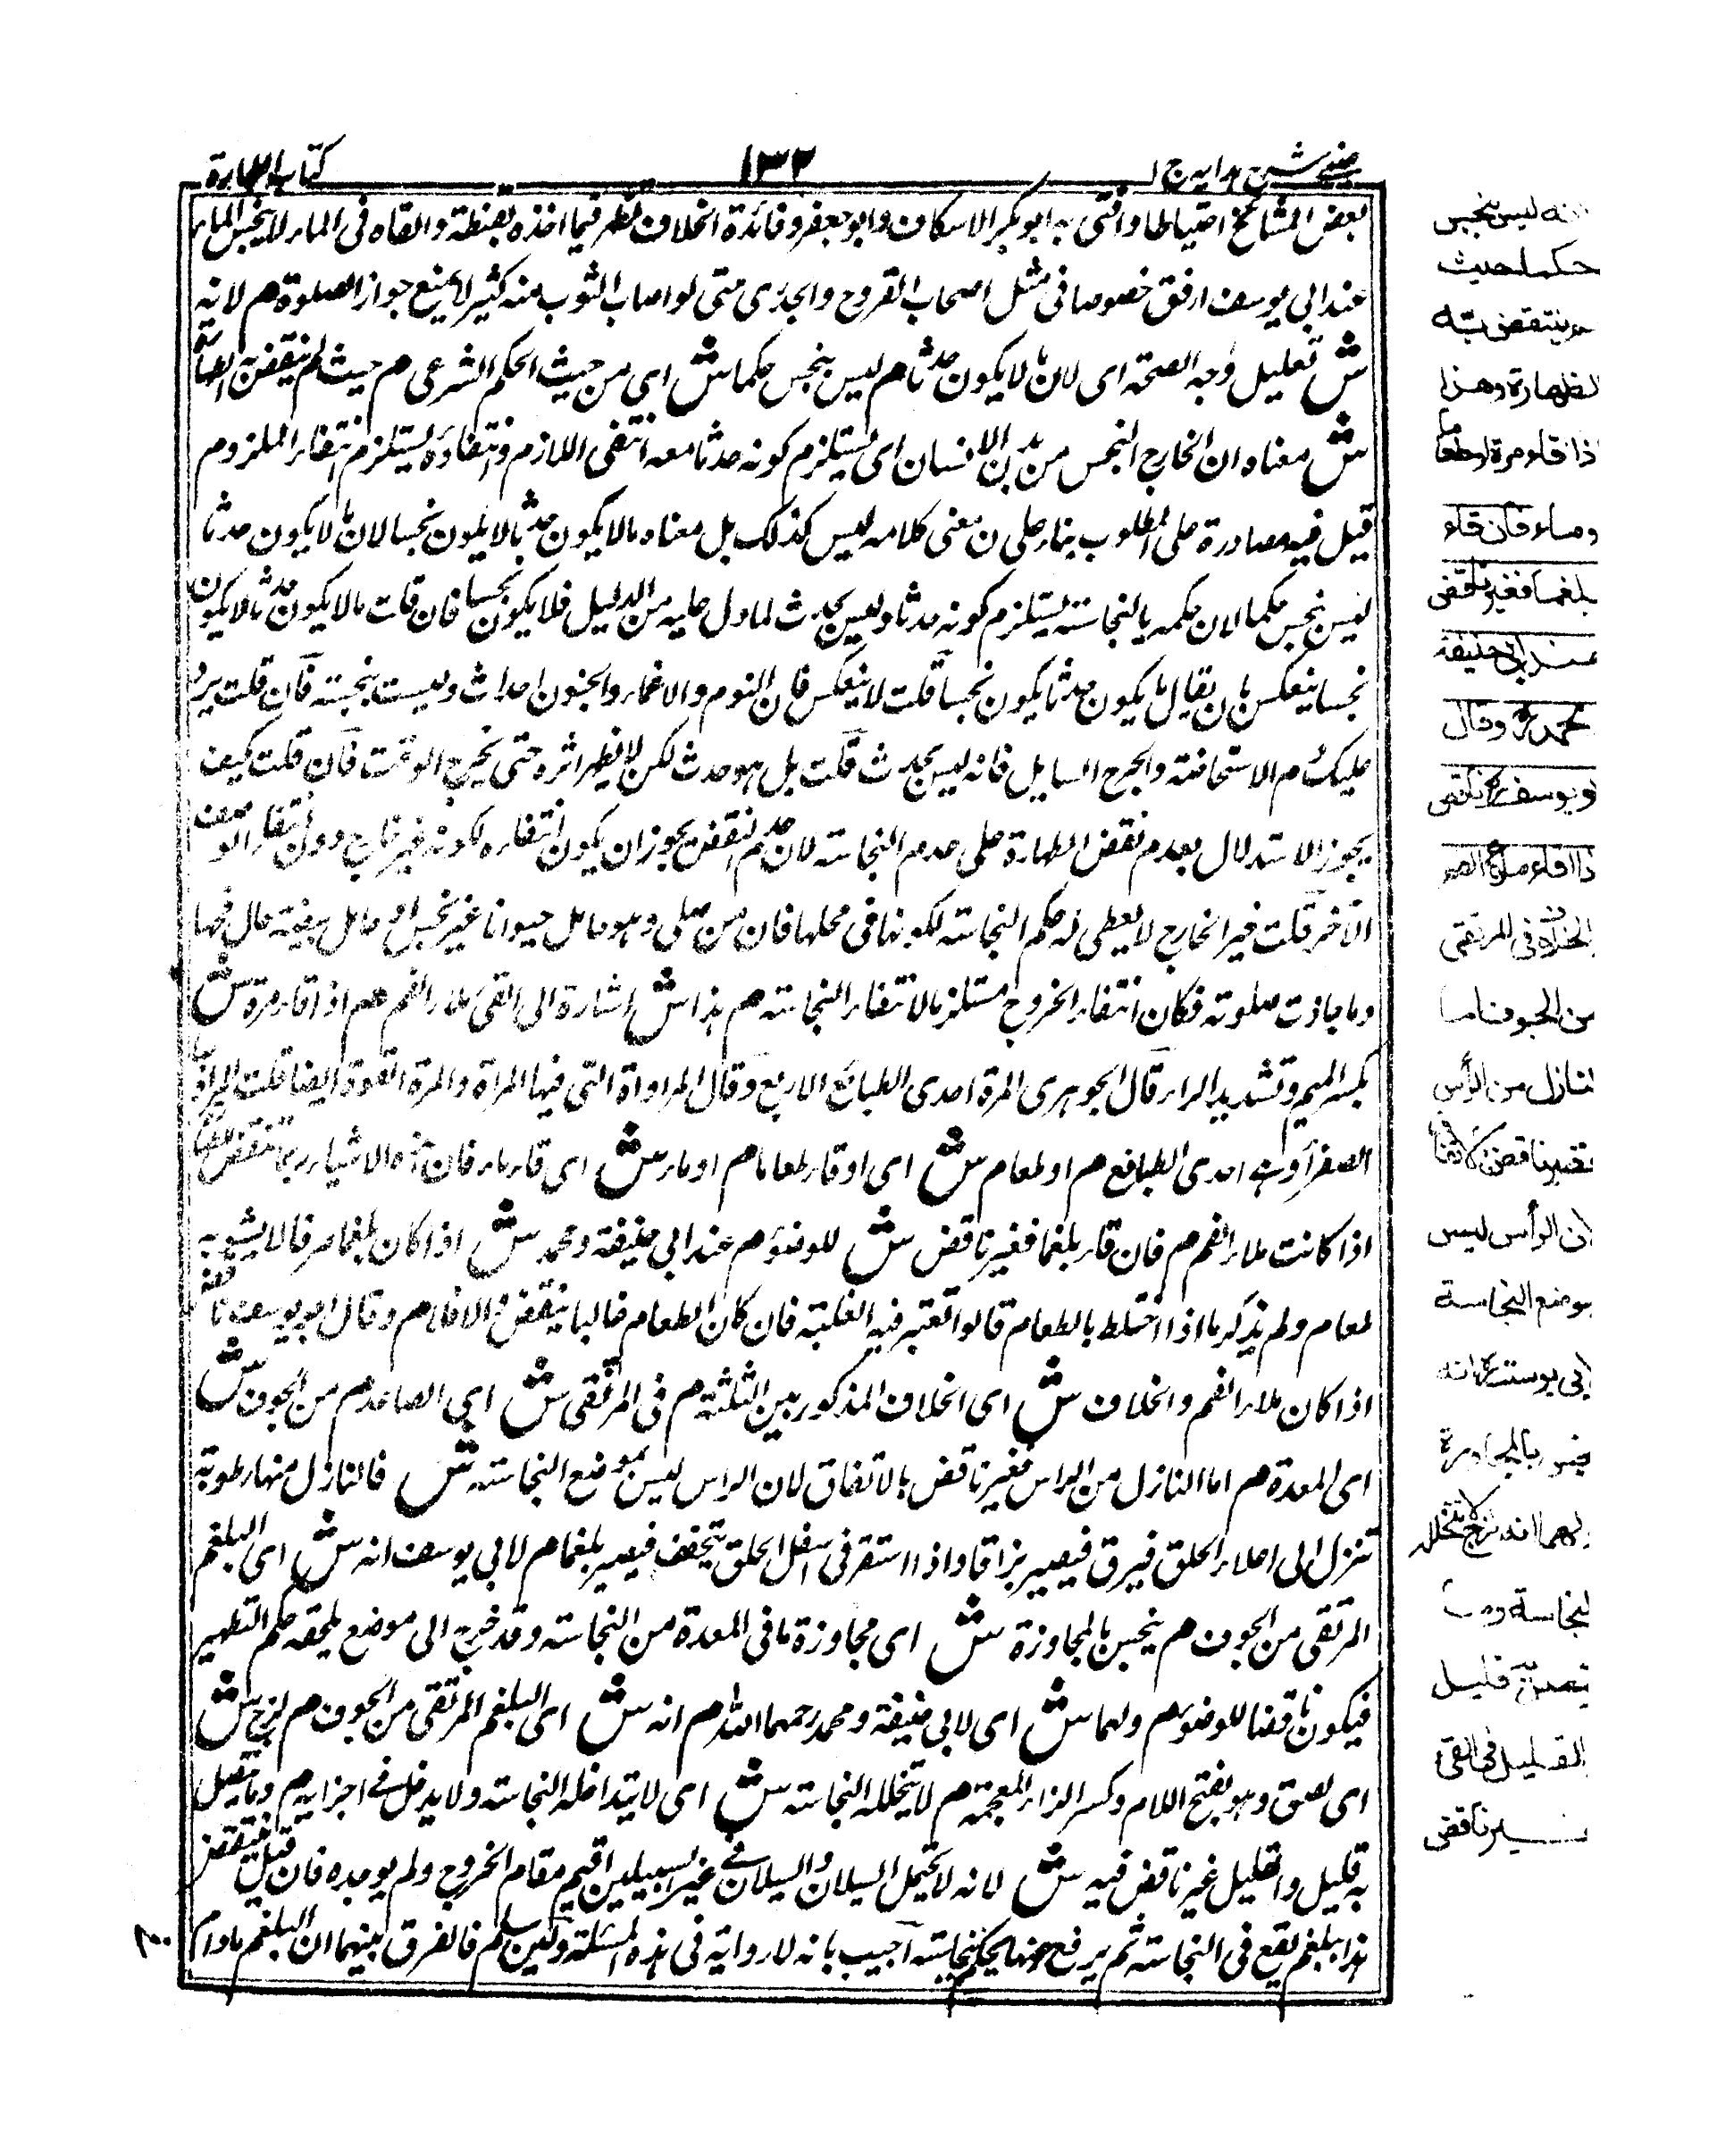 عینی شرح هدایه ج ۱
۱۳۲
كتاب الطهارة
بعض المشائخ احتياطا وافتى به ابو بكر الاسكاف وابو جعفر وفائدة الخلاف تظهر فيما اخذه بقطنة والقاه فى الماء لا ينجس الماء
عند ابى يوسف ارفق خصوصا فى مثل اصحاب القروح والجدرى حتى لو اصاب الثوب منه كثير لا يمنع جواز الصلوة م لانه
ش تعليل وجه الصحة اى لان ما لا يكون حدثا م ليس بنجس حكما ش اى من حيث الحكم الشرعى م حيث لم ينتقض به الطهارة
ش معناه ان الخارج النجس من بدن الانسان اى يستلزم كونه حدثا معه انتفى اللازم وانتفاؤه يستلزم انتفاء الملزوم
قيل فيه مصادرة على المطلوب بناء على ن معنى كلامه ليس كذلك بل معناه ما لا يكون حدثا لا يكون نجسا لان ما لا يكون حدثا
ليس بنجس حكما لان حكمه بالنجاسة يستلزم كونه حدثا وليس بحدث لما دل عليه من الدليل فلا يكون نجسا فان قلت ما لا يكون حدثا لا يكون
نجسا ينعكس بان يقال ما يكون حدثا يكون نجسا قلت لا ينعكس فان النوم والاغماء والجنون احداث وليست بنجسة فان قلت يرد
عليك دم الاستحاضة والجرح السايل فانه ليس بحدث قلت بل هو حدث لكن لا يظهر اثره حتى يخرج الوقت فان قلت كيف
يجوز الاستدلال بعدم نقض الطهارة على عدم النجاسة لان عدم النقض يجوز ان يكون انتفاءه لكونه غير خارج دون انتفاء الوصف
الآخر قلت غير الخارج لا يعطى له حكم النجاسة لكونها فى محلها فان من صلى وهو حامل حيوانا غير نجس او حامل بيضة حال محها
دما جازت صلوته فكان انتفاء الخروج مستلزما لانتفاء النجاسة م هذا ش اشارة الى القئ ملاء الفم م اذا قاء مرة ش
بكسر الميم وتشديد الراء قال الجوهرى المرة احدى الطبائع الاربع وقال المراواة التى فيها المرة والمرة القوة ايضا قلت المراد بها
الصفراء وهى احدى الطبائع م او طعام ش اى او قاء طعاما م او ماء ش اى قاء ماء فان هذه الاشياء ربما تنقض الطهارة
اذا كانت ملاء الفم م فان قاء بلغما فغير ناقض ش للوضوء م عند ابى حنيفة ومحمد ش اذا كان بلغما صرفا لا يشوبه
طعام ولم يذكر ما اذا اختلط بالطعام قالوا تعتبر فيه الغلبة فان كان الطعام غالبا ينقض والا فلا م وقال ابو يوسف ناقض
اذا كان ملاء الفم والخلاف ش اى الخلاف المذكور بين الثلثة م فى المرتقى ش اى الصاعد م من الجوف ش
اى المعدة م اما النازل من الراس فغير ناقض بالاتفاق لان الراس ليس بموضع النجاسة ش فالنازل منها رطوبة
تنزل الى اعلاء الحلق فيرق فيصير بزاقا واذا استقر فى اسفل الحلق يتخفف فيصير بلغما م لابى يوسف انه ش اى البلغم
المرتقى من الجوف م ينجس بالمجاورة ش اى مجاورة ما فى المعدة من النجاسة وقد خرج الى موضع يلحقه حكم التطهير
فيكون ناقضا للوضوء م ولهما ش اى لابى حنيفة ومحمد رحمهما الله م انه ش اى البلغم المرتقى من الجوف م لزج ش
اى لصق وهو بفتح اللام وكسر الزاء المعجمة م لا يتخلله النجاسة ش اى لا يتداخله النجاسة ولا يدخل فى اجزائه م وما يتصل
به قليل والقليل غير ناقض فيه ش لانه لا يحتمل السيلان والسيلان فى غير السبيلين اقيم مقام الخروج ولم يوجد ه فان قيل ينتقض
هذا ببلغم يقع فى النجاسة ثم يرفع منها يحكم بنجاسته اجيب بانه لا رواية فى هذه المسئلة ولئن سلم فالفرق بينهما ان البلغم ما دام
لانه ليس بنجس
حكما حيث
لم ينتقض به
الطهارة وهذا
اذا قاء مرة او طعاما
او ماء فان قاء
بلغما فغير ناقض
عند ابى حنيفة
ومحمد رح وقال
ابو يوسف رح ناقض
اذا قاء ملاء الفم
والخلاف فى المرتقى
من الجوف اما
النازل من الرأس
فغير ناقض بالاتفاق
لان الرأس ليس
بموضع النجاسة
لابى يوسف رح انه
ينجس بالمجاورة
ولهما انه لزج لا تتخلله
النجاسة وما
يتصل به قليل
والقليل فى القئ
غير ناقض